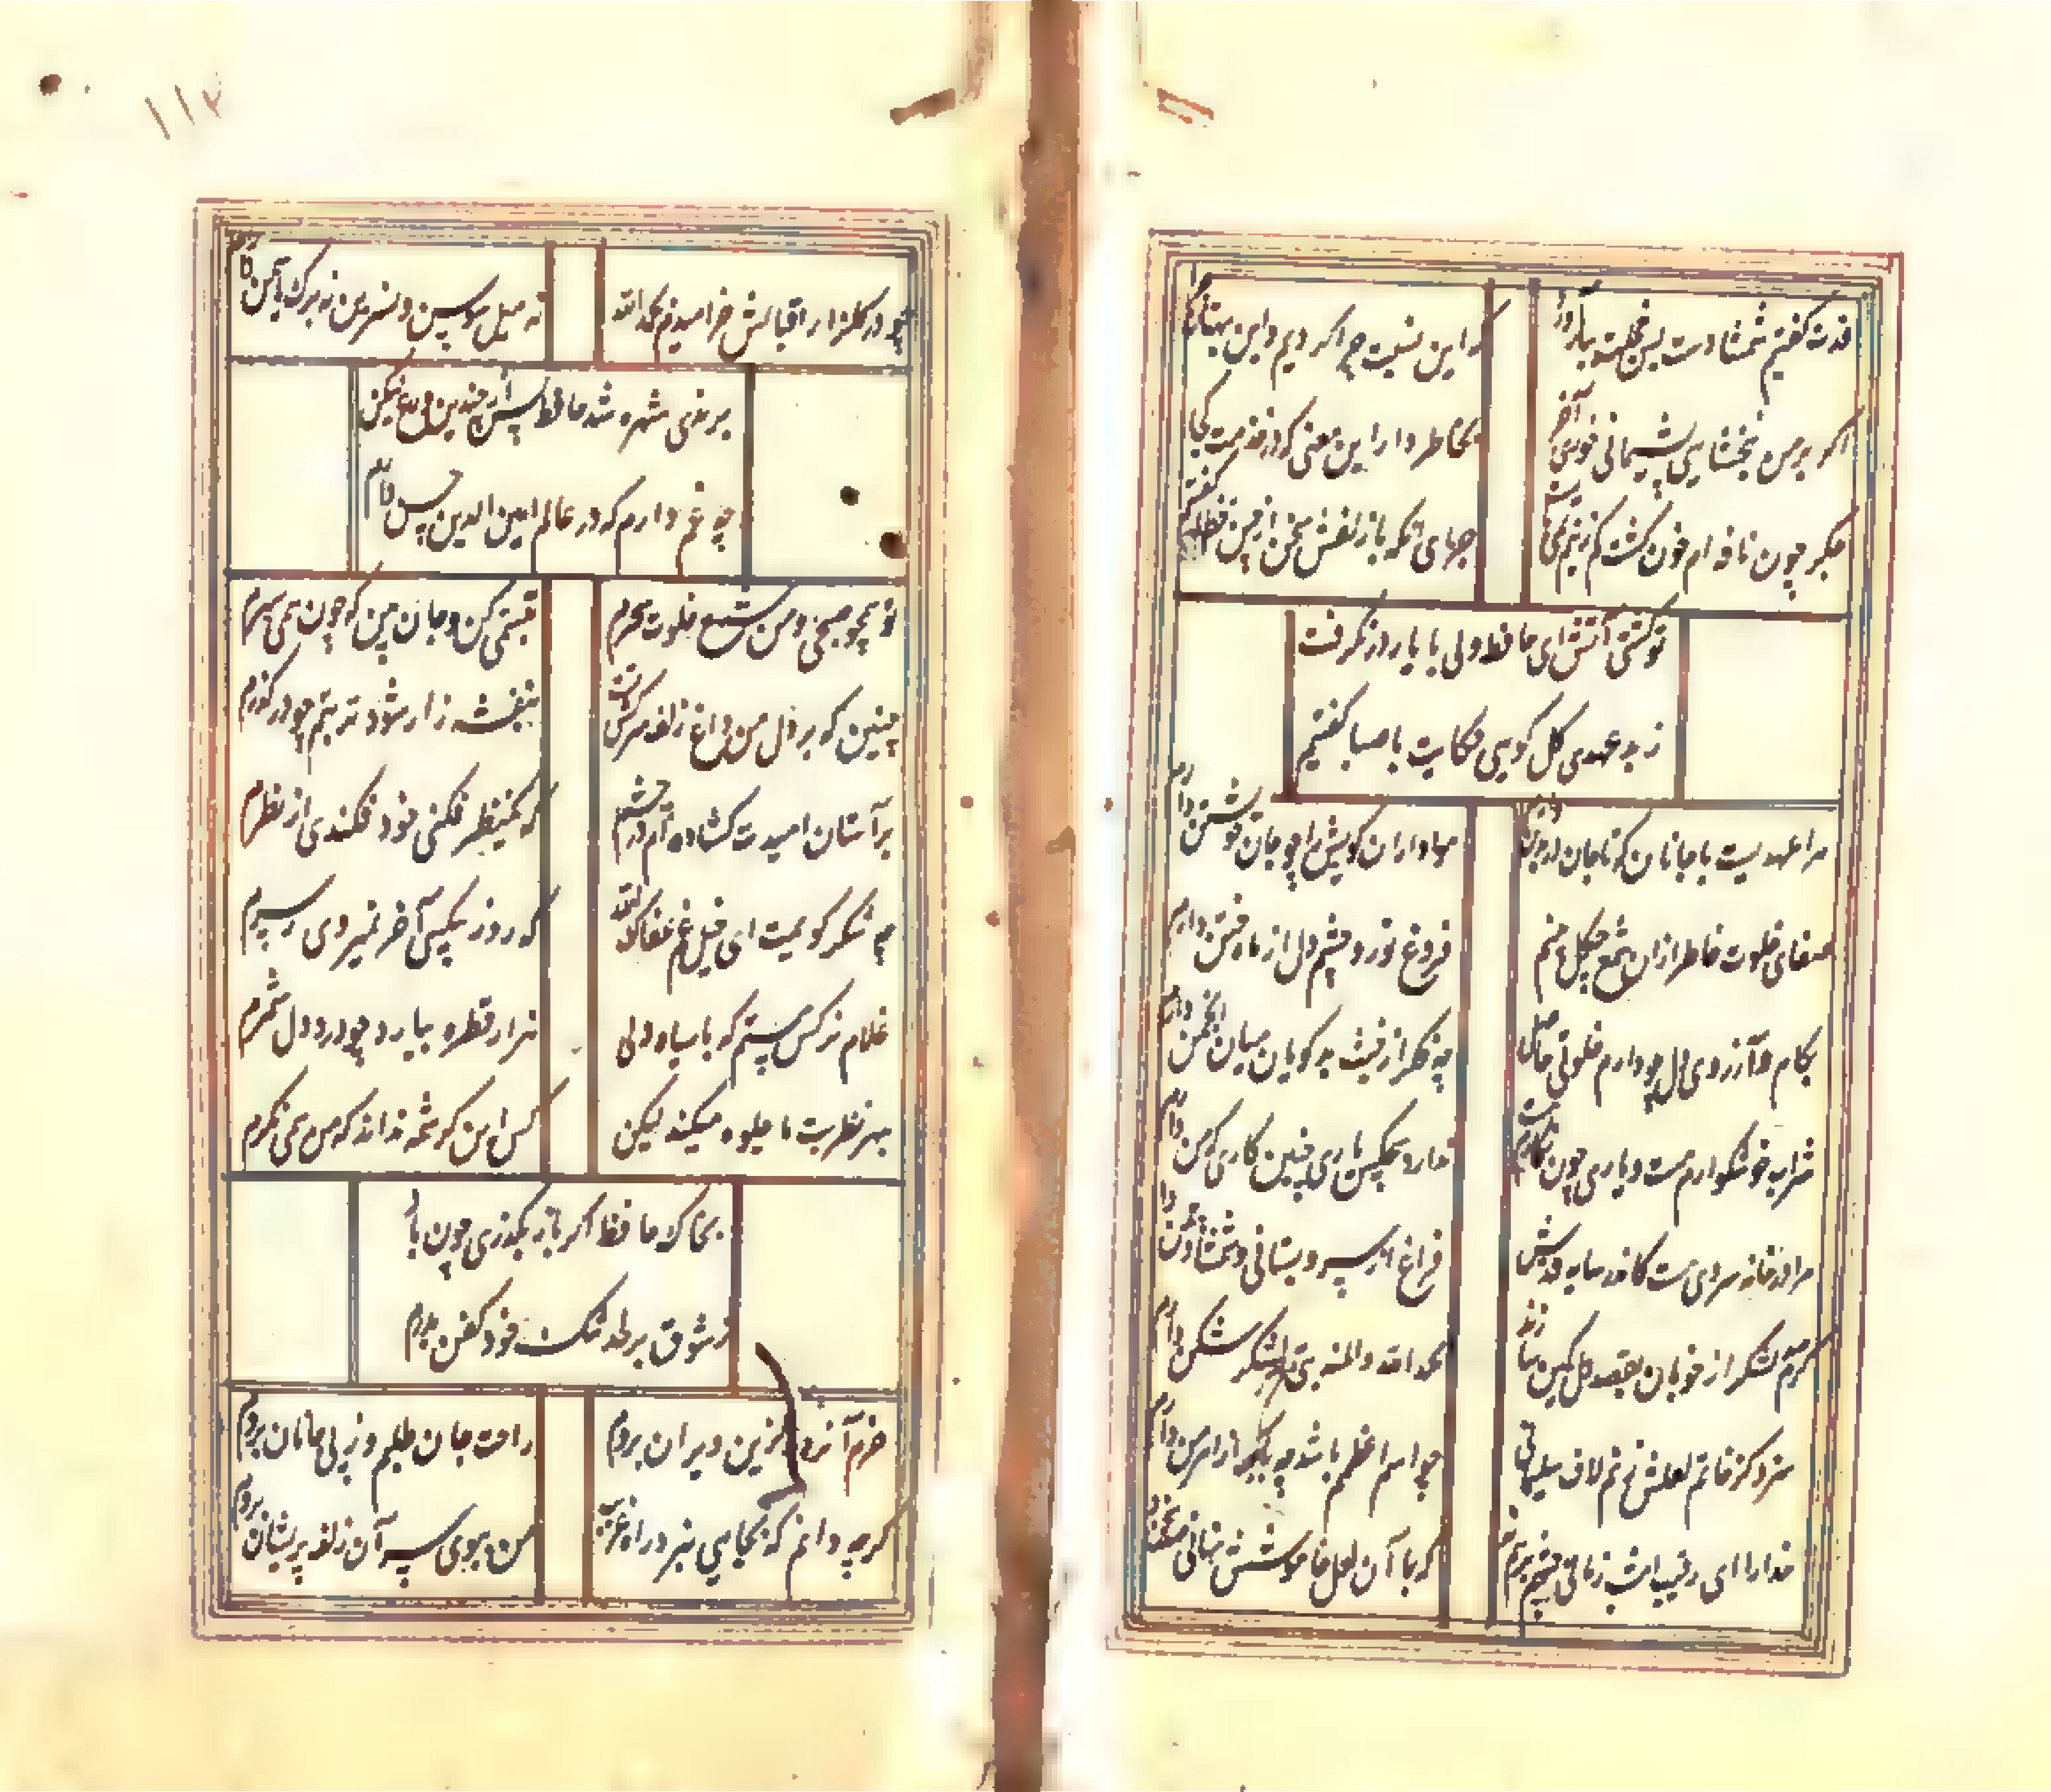 قدت گفتم شمشادست بس خجلت ببار آورد
که این نسبت چرا کردیم و این بهتان چرا گفتیم
اگر بر من نبخشایی پشیمانی خوری آخر
بخاطر دار این معنی که در خدمت کجا گفتیم
جگر چون نافه ام خون گشت کم زینم نمی باید
جزای آنکه با زلفش سخن از چین خطا گفتیم
تو کشتی آتش ای حافظ ولی با یار در نگرفت
ز بد عهدی گل گویی حکایت با صبا گفتیم
مرا عهدیست با جانان که تا جان در بدن دارم
هواداران کویش را چو جان خویشتن دارم
صفای خلوت خاطر از ان شمع چگل بینم
فروغ نور و چشم دل از ماه ختن دارم
بکام و آرزوی دل چو دارم خلوتی حاصل
چه فکر از خبث بد گویان میان انجمن دارم
شراب خوشگوارم هست و یاری چون نگارم هست
ندارد هیچکس باری چنین کاری که من دارم
مرا در خانه سروی هست کاندر سایه قدش
فراغ از سرو بستانی و شمشاد چمن دارم
گرم صد لشکر از خوبان بقصد دل کمین سازند
بحمد الله و المنه بتی لشکر شکن دارم
سزد کز خاتم لعلش زنم لاف سلیمانی
چو اسم اعظم باشد چه باک از اهرمن دارم
خدا را ای رقیب امشب زمانی چشم بر هم نه
که با آن لعل خاموشش نهانی صد سخن دارم
۱۱۲
چو در گلزار اقبالش خرامیدم بحمد الله
نه میل سوسن و نسرین نه برگ یاسمن دارم
برندی شهره شد حافظ پس از چندین ورع لیکن
چه غم دارم که در عالم امین الدین حسن دارم
تو همچو صبحی و من شمع خلوت سحرم
تبسمی کن و جان بین که چون همی سپرم
چنین که بر دل من داغ زلف سرکش تست
بنفشه زار شود تربتم چو در گذرم
بر آستان امیدت گشاده ام در چشم
که یکنظر فکنی خود فکندی از نظرم
چه شکر گویمت ای خیل غم عفاک الله
که روز بیکسی آخر نمیروی ز سرم
غلام نرگس مستم که با سیاه دلی
هزار قطره ببارد چو درد دل شمرم
بهر نظر بت ما جلوه میکند لیکن
کس این کرشمه نداند که من همی نگرم
بخاک حافظ اگر باز بگذری چون باد
ز شوق بر لحد تنگ خود کفن بدرم
خرم آنروز کزین ویران بروم
راحت جان طلبم وز پی جانان بروم
گر چه دانم که بجایی نبرد راه غریب
من ببوی سر آن زلف پریشان بروم